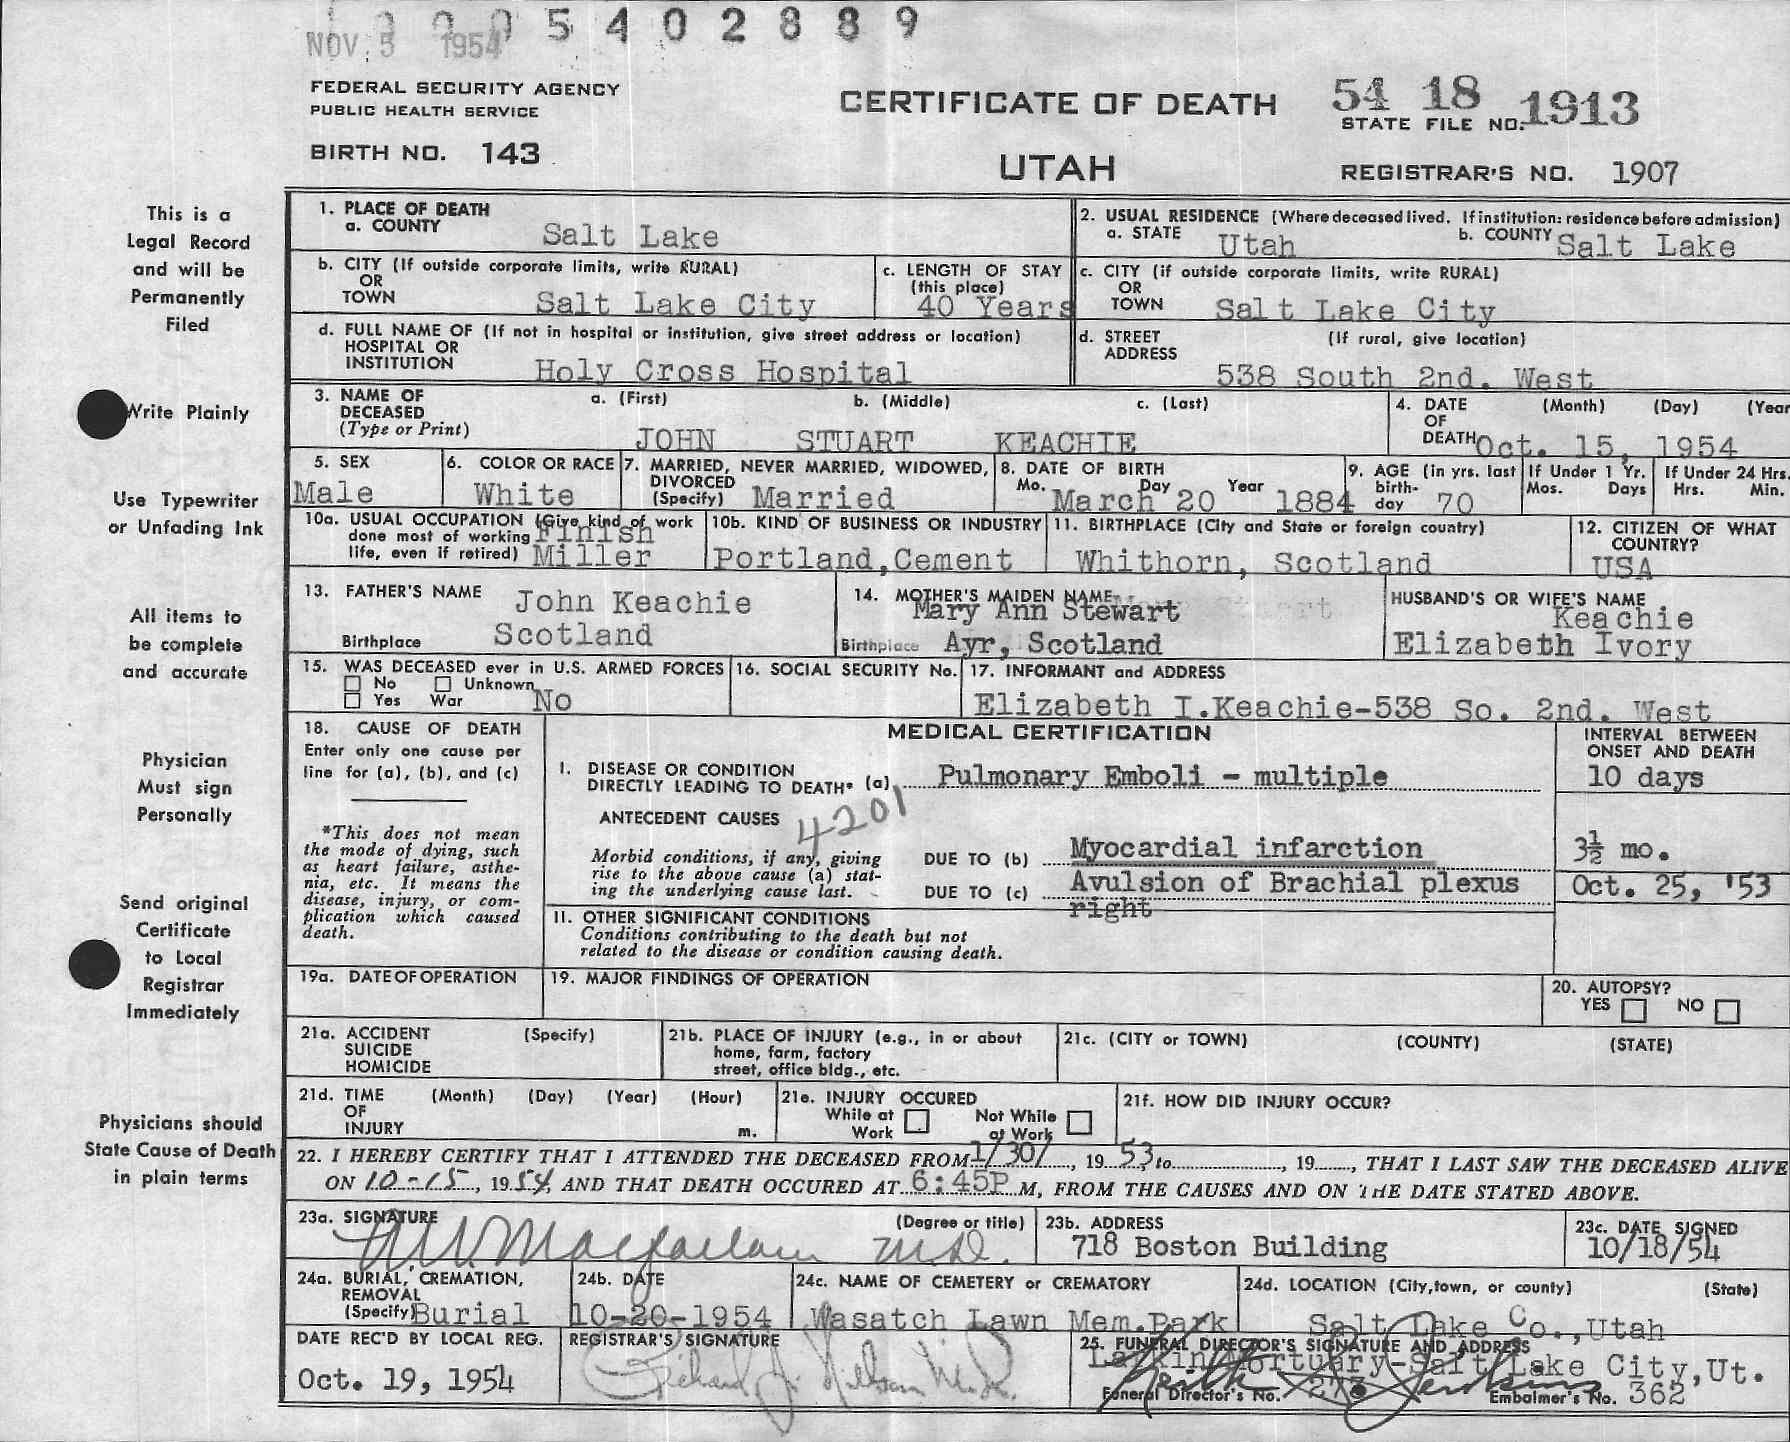 5402889
NOV 5 1954
FEDERAL SECURITY AGENCY
PUBLIC HEALTH SERVICE
BIRTH NO. 143
CERTIFICATE OF DEATH
UTAH
54 18 1913
STATE FILE NO.
REGISTRAR'S NO. 1907
This is a
Legal Record
and will be
Permanently
Filed
Write Plainly
Use Typewriter
or Unfading Ink
All items to
be complete
and accurate
Physician
Must sign
Personally
Send original
Certificate
to Local
Registrar
Immediately
Physicians should
State Cause of Death
in plain terms
1. PLACE OF DEATH
a. COUNTY Salt Lake
2. USUAL RESIDENCE (Where deceased lived. If institution: residence before admission)
a. STATE Utah b. COUNTY Salt Lake
b. CITY (If outside corporate limits, write RURAL)
OR
TOWN Salt Lake City
c. LENGTH OF STAY
(this place)
40 Years
c. CITY (if outside corporate limits, write RURAL)
OR
TOWN Salt Lake City
d. FULL NAME OF (If not in hospital or institution, give street address or location)
HOSPITAL OR
INSTITUTION Holy Cross Hospital
d. STREET (If rural, give location)
ADDRESS
538 South 2nd. West
3. NAME OF a. (First) b. (Middle) c. (Last)
DECEASED
(Type or Print) JOHN STUART KEACHIE
4. DATE (Month) (Day) (Year
OF
DEATH Oct. 15, 1954
5. SEX
Male
6. COLOR OR RACE
White
7. MARRIED, NEVER MARRIED, WIDOWED,
DIVORCED
(Specify) Married
8. DATE OF BIRTH
Mo. Day Year
March 20 1884
9. AGE (in yrs. last
birth-
day 70
If Under 1 Yr.
Mos. Days
If Under 24 Hrs.
Hrs. Min.
10a. USUAL OCCUPATION (Give kind of work
done most of working Finish
life, even if retired) Miller
10b. KIND OF BUSINESS OR INDUSTRY
Portland,Cement
11. BIRTHPLACE (City and State or foreign country)
Whithorn, Scotland
12. CITIZEN OF WHAT
COUNTRY?
USA
13. FATHER'S NAME John Keachie
Birthplace Scotland
14. MOTHER'S MAIDEN NAME
Mary Ann Stewart
Birthplace Ayr, Scotland
HUSBAND'S OR WIFE'S NAME
Keachie
Elizabeth Ivory
15. WAS DECEASED ever in U.S. ARMED FORCES
No Unknown
Yes War No
16. SOCIAL SECURITY No.
17. INFORMANT and ADDRESS
Elizabeth I.Keachie-538 So. 2nd. West
18. CAUSE OF DEATH
Enter only one cause per
line for (a), (b), and (c)
*This does not mean
the mode of dying, such
as heart failure, asthe-
nia, etc. It means the
disease, injury, or com-
plication which caused
death.
MEDICAL CERTIFICATION
INTERVAL BETWEEN
ONSET AND DEATH
I. DISEASE OR CONDITION
DIRECTLY LEADING TO DEATH* (a) Pulmonary Emboli - multiple 10 days
ANTECEDENT CAUSES 4201
Morbid conditions, if any, giving
rise to the above cause (a) stat-
ing the underlying cause last.
DUE TO (b) Myocardial infarction 3½ mo.
DUE TO (c) Avulsion of Brachial plexus Oct. 25, '53
right
II. OTHER SIGNIFICANT CONDITIONS
Conditions contributing to the death but not
related to the disease or condition causing death.
19a. DATE OF OPERATION
19. MAJOR FINDINGS OF OPERATION
20. AUTOPSY?
YES NO
21a. ACCIDENT (Specify)
SUICIDE
HOMICIDE
21b. PLACE OF INJURY (e.g., in or about
home, farm, factory
street, office bldg., etc.
21c. (CITY or TOWN) (COUNTY) (STATE)
21d. TIME (Month) (Day) (Year) (Hour)
OF
INJURY m.
21e. INJURY OCCURED
While at Not While
Work at Work
21f. HOW DID INJURY OCCUR?
22. I HEREBY CERTIFY THAT I ATTENDED THE DECEASED FROM 1/30/, 19 53 to , 19 , THAT I LAST SAW THE DECEASED ALIVE
ON 10-15, 19 54, AND THAT DEATH OCCURED AT 6:45P M, FROM THE CAUSES AND ON THE DATE STATED ABOVE.
23a. SIGNATURE (Degree or title)
Macfarlane M.D.
23b. ADDRESS
718 Boston Building
23c. DATE SIGNED
10/18/54
24a. BURIAL, CREMATION,
REMOVAL
(Specify) Burial
24b. DATE
10-20-1954
24c. NAME OF CEMETERY or CREMATORY
Wasatch Lawn Mem.Park
24d. LOCATION (City,town, or county) (State)
Salt Lake Co.,Utah
DATE REC'D BY LOCAL REG.
Oct. 19, 1954
REGISTRAR'S SIGNATURE
Richard J. M.D.
25. FUNERAL DIRECTOR'S SIGNATURE AND ADDRESS
Larkin Mortuary-Salt Lake City,Ut.
Funeral Director's No. Embalmer's No. 362